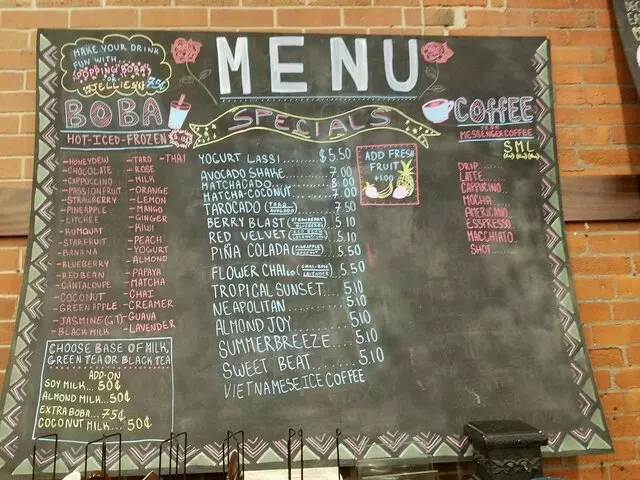 MAKE YOUR DRINK
FUN WITH...
"POPPING BOBA"
OR
"JELLIES" 75¢
MENU
BOBA
HOT-ICED-FROZEN
SPECIALS
COFFEE
FROM
MESSENGER COFFEE
S M L
-HONEYDEW
-CHOCOLATE
-CAPPUCCINO
-PASSIONFRUIT
-STRAWBERRY
-PINEAPPLE
-LITCHEE
-KUMQUAT
-STARFRUIT
-BANANA
-BLUEBERRY
-RED BEAN
-CANTALOUPE
-COCONUT
-GREEN APPLE
-JASMINE (GT)
-BLACK MILK
-TARO -THAI
-ROSE
-MILK
-ORANGE
-LEMON
-MANGO
-GINGER
-KIWI
-PEACH
-YOGURT
-ALMOND
-PAPAYA
-MATCHA
-CHAI
-CREAMER
-GUAVA
-LAVENDER
CHOOSE BASE OF MILK,
GREEN TEA OR BLACK TEA
ADD-ON
SOY MILK... 50¢
ALMOND MILK... 50¢
EXTRA BOBA... 75¢
COCONUT MILK... 50¢
YOGURT LASSI....... $5.50
AVOCADO SHAKE 7.00
MATCHACADO........ 8.00
MATCHA-COCONUT 7.00
TAROCADO (TARO AVOCADO) ..... 7.50
BERRY BLAST (STRAWBERRY BLUEBERRY) 5.10
RED VELVET 5.10
PIÑA COLADA (PINEAPPLE COCONUT) 5.50
FLOWER CHAI (CHAI-ROSE LAVENDER) 5.50
TROPICAL SUNSET.... 5.10
NEAPOLITAN...... 5.10
ALMOND JOY..... 5.10
SUMMERBREEZE.... 5.10
SWEET BEAT..... 5.10
VIETNAMESE ICE COFFEE
ADD FRESH
FRUIT
+$1.00
DRIP
LATTE
CAPPUCINO
MOCHA
AMERICANO
ESSPRESO
MACCHIATO
SHOT